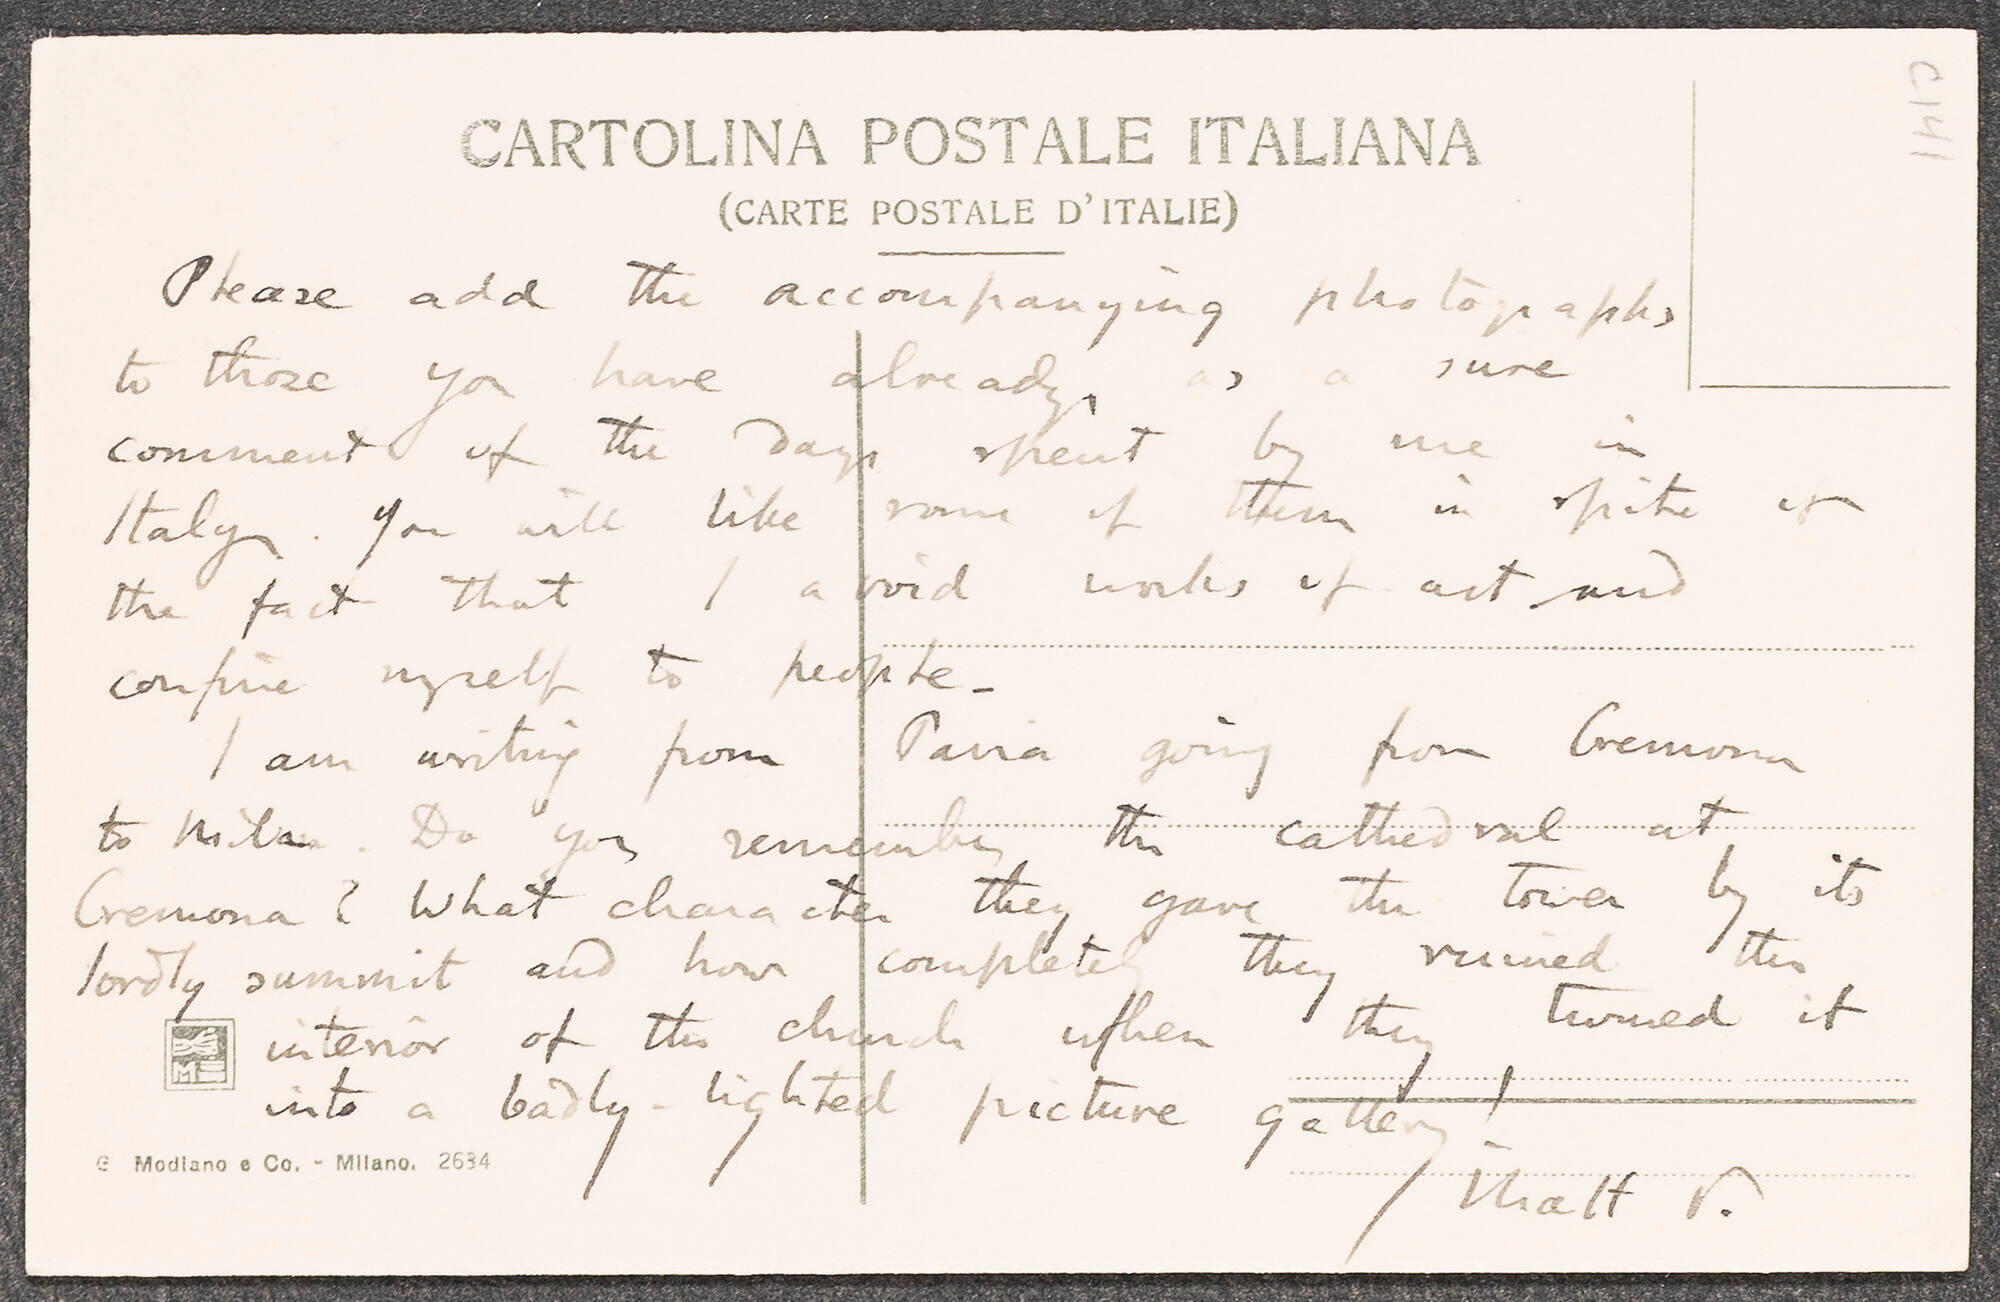 C141
CARTOLINA POSTALE ITALIANA
(CARTE POSTALE D'ITALIE)
Please add the accompanying photographs
to those you have already, as a sure
comment of the days spent by me in
Italy. You will like some of them in spite of
the fact that I avoid works of art and
confine myself to people-
I am writing from Pavia going from Cremona
to Milan. Do you remember the cathedral at
Cremona? What character they gave the tower by its
lordly summit and how completely they ruined the
interior of the church when they turned it
into a badly-lighted picture gallery!
Matt P.
G Modiano e Co. - Milano. 2634